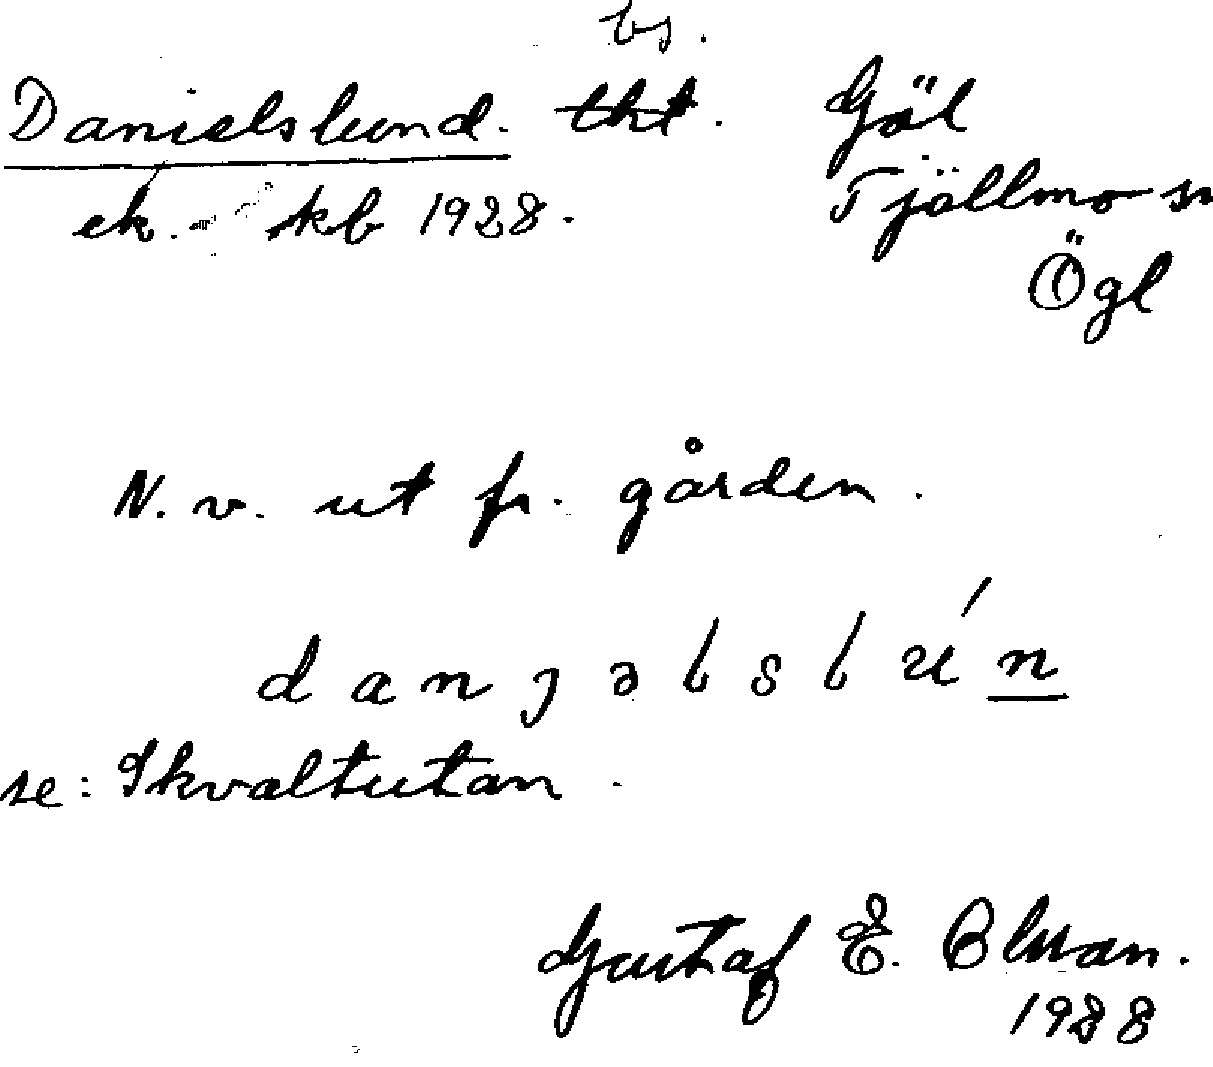 bs.
Danielslund. tht. Gäl
ek. kb 1928. Tjällmo sn
Ögl
N. v. ut fr. gården.
danȷəlslún
se: Skvaltutan.
Gustaf E.
1928